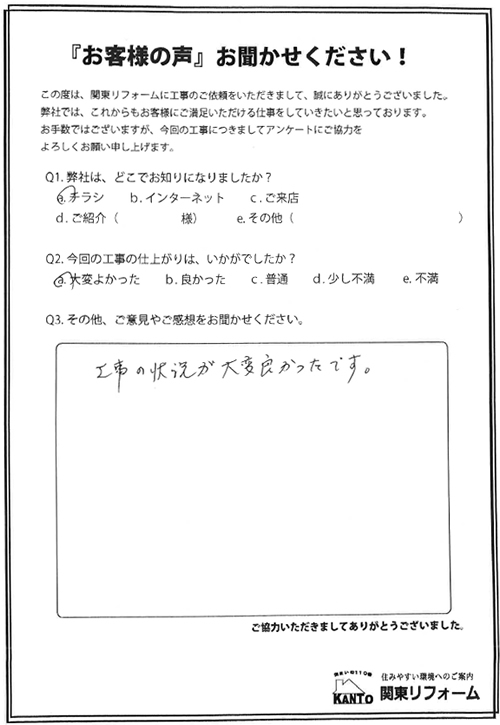 『お客様の声』お聞かせください!
この度は、関東リフォームに工事のご依頼をいただきまして、誠にありがとうございました。
弊社では、これからもお客様にご満足いただける仕事をしていきたいと思っております。
お手数ではございますが、今回の工事につきましてアンケートにご協力を
よろしくお願い申し上げます。
Q1. 弊社は、どこでお知りになりましたか?
a. チラシ b. インターネット c. ご来店
d. ご紹介( 様) e. その他( )
Q2. 今回の工事の仕上がりは、いかがでしたか?
a. 大変よかった b. 良かった c. 普通 d. 少し不満 e. 不満
Q3. その他、ご意見やご感想をお聞かせください。
工事の状況が大変良かったです。
ご協力いただきましてありがとうございました。
住みやすい環境へのご案内
KANTO 関東リフォーム